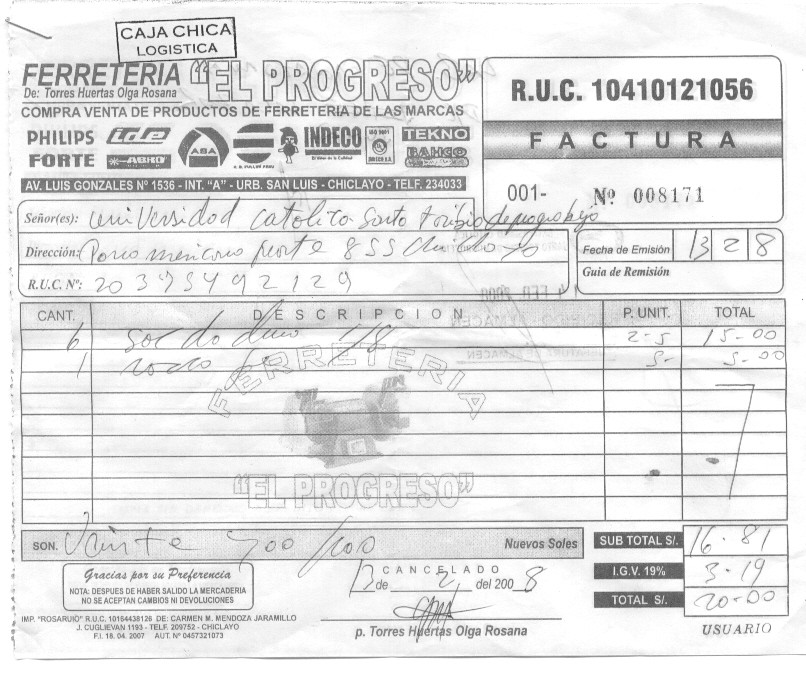 CAJA CHICA
LOGISTICA
FERRETERIA "EL PROGRESO"
De: Torres Huertas Olga Rosana
COMPRA VENTA DE PRODUCTOS DE FERRETERIA DE LAS MARCAS
PHILIPS ide ABA INDECO TEKNO
FORTE ABRO BAHCO
AV. LUIS GONZALES Nº 1536 - INT. "A" - URB. SAN LUIS - CHICLAYO - TELF. 234033
R.U.C. 10410121056
FACTURA
001- Nº 008171
Señor(es): Universidad Catolica Santo Toribio de Mogrobejo
Dirección: norte 855
R.U.C. Nº: 20395492129
Fecha de Emisión 13 2 8
Guia de Remisión
CANT. DESCRIPCION P. UNIT. TOTAL
6 1/8 2-5 15-00
1 5- 5-00
FERRETERIA
"EL PROGRESO"
SON. Veinte 00/100 Nuevos Soles
SUB TOTAL S/. 16.81
I.G.V. 19% 3-19
TOTAL S/. 20-00
Gracias por su Preferencia
NOTA: DESPUES DE HABER SALIDO LA MERCADERIA
NO SE ACEPTAN CAMBIOS NI DEVOLUCIONES
CANCELADO
13 de 2 del 2008
p. Torres Huertas Olga Rosana
IMP. "ROSARUIÒ" R.U.C. 10164438126 DE: CARMEN M. MENDOZA JARAMILLO
J. CUGLIEVAN 1193 - TELF. 209752 - CHICLAYO
F.I. 18. 04. 2007 AUT. Nº 0457321073
USUARIO